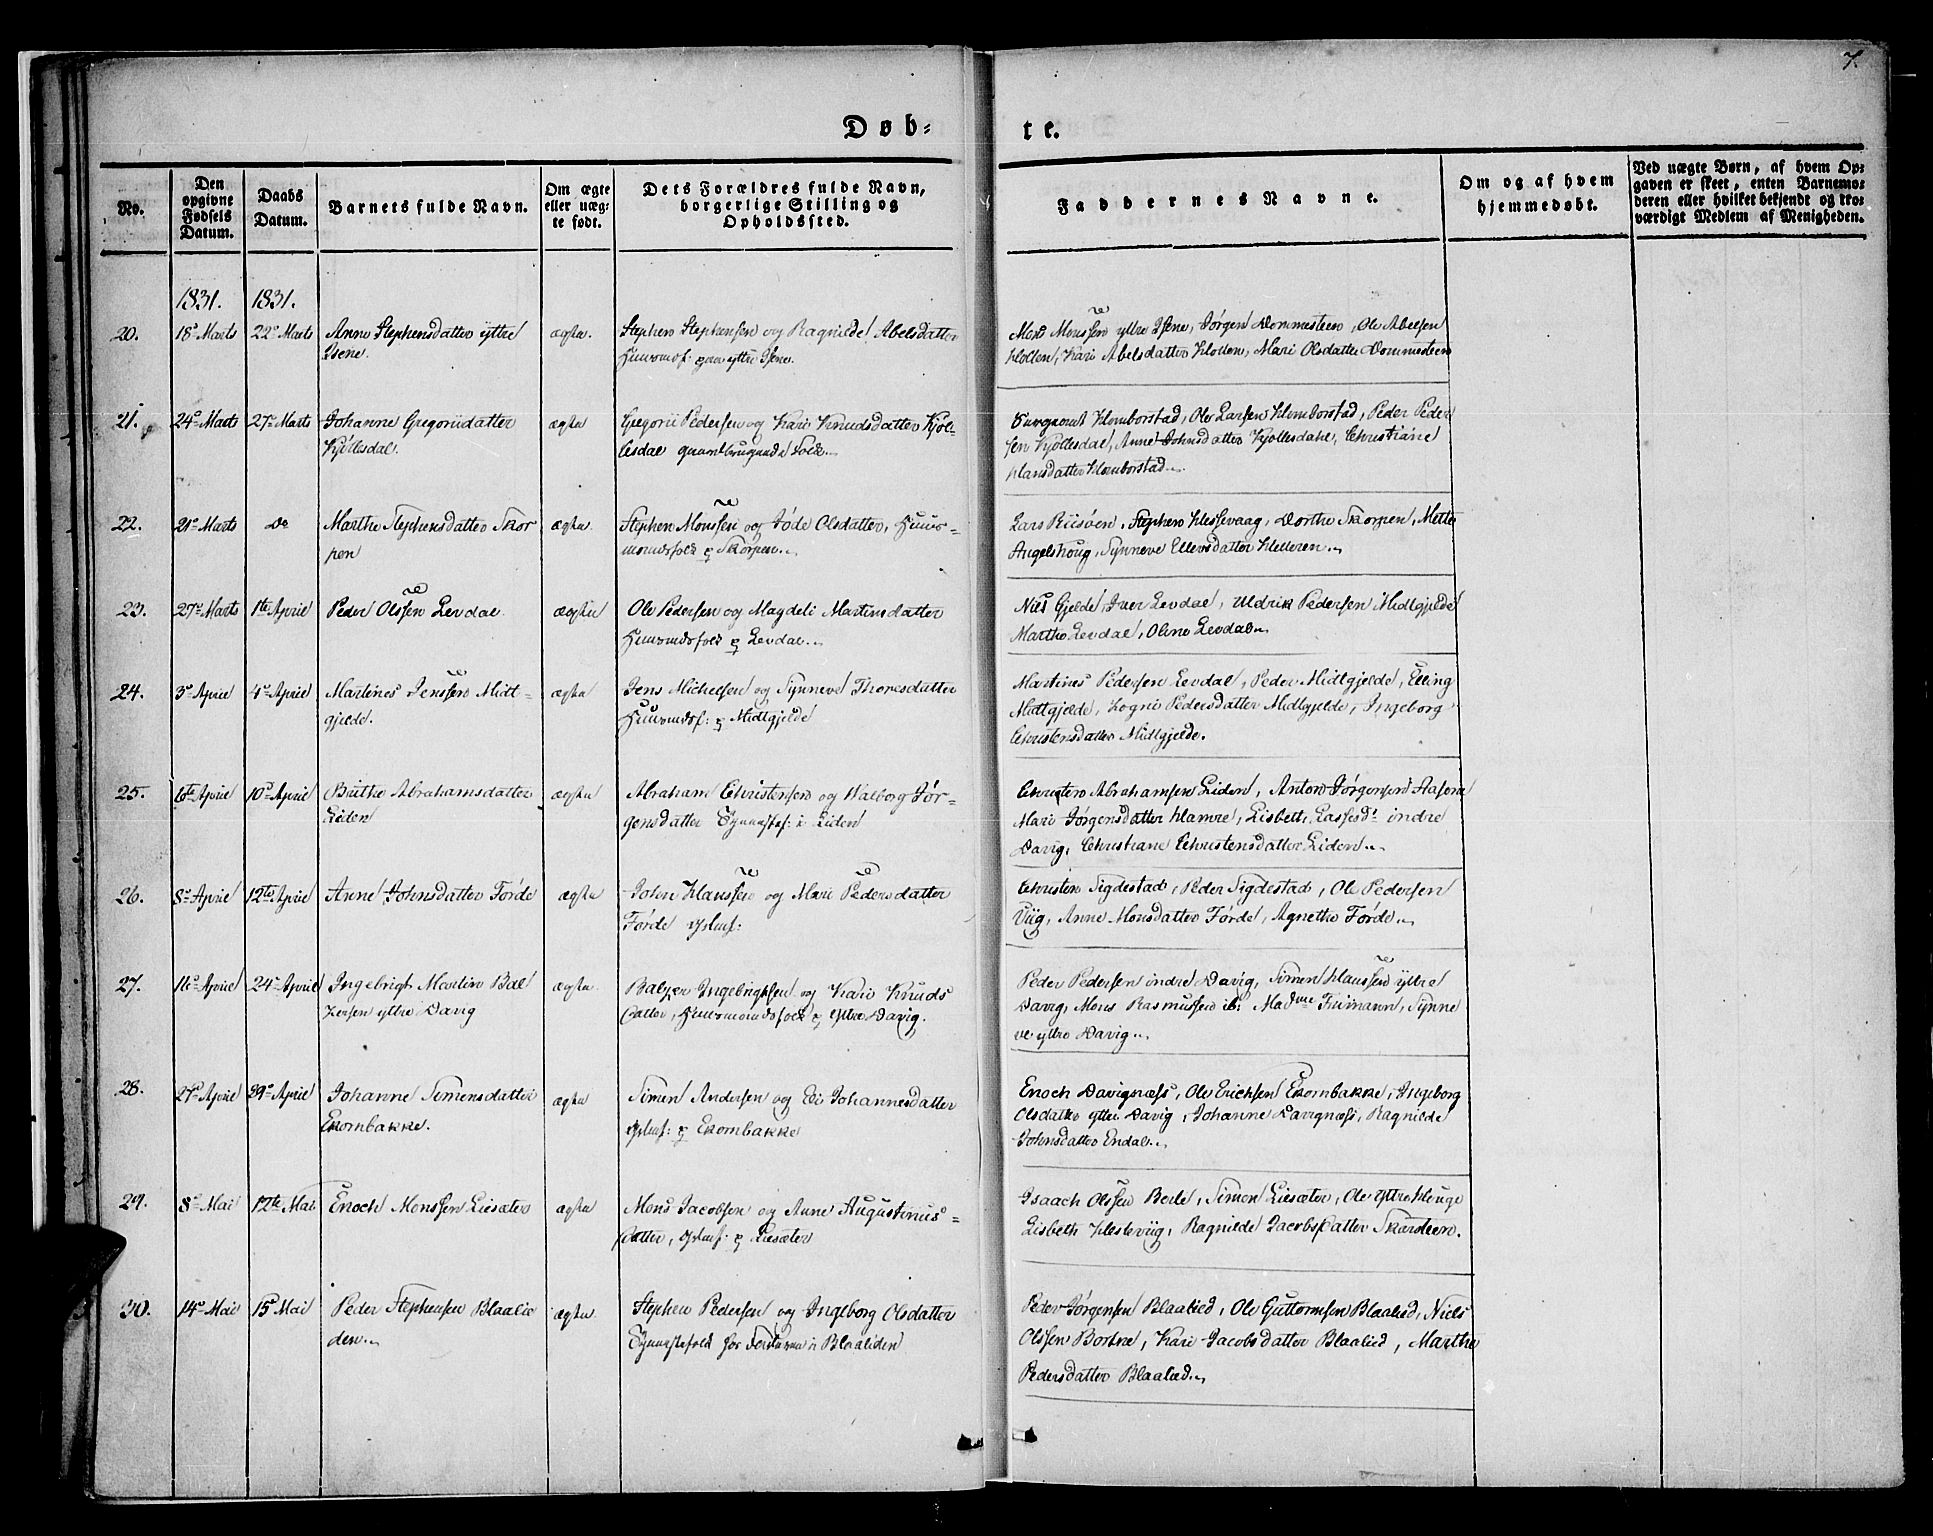 7.
Døb-
te.
No.
Den opgivne Fødsels Datum.
Daabs Datum.
Barnets fulde Navn.
Om ægte eller uægte født.
Dets Forældres fulde Navn, borgerlige Stilling og Opholdssted.
Faddernes Navne.
Om og af hvem hjemmedøbt.
Ved uægte Børn, af hvem Opgaven er skeet, enten Barnemoderen eller hvilket bekjendt og troværdigt Medlem af Menigheden.
1831. 1831.
20. 18de Marts 22de Marts Anne Stephensdatter yttre
Isene.
ægte.
Stephen Stephensen og Ragnilde Abelsdatter
yttre Isene.
Mons Monssen yttre Isene, Jørgen Dommesteen, Ole Abelsen
Hollen, Kari Abelsdatter Hollen, Mari Olsdatter Dommesteen
21. 24de Marts 27de Marts Johanne Gregoriidatter
Kjøllesdal.
ægte
Gregorii Pedersen og Kari Knudsdatter Kjøl-
lesdal Folk.
Homborstad, Ole Larsen Homborstad, Peder Peder
sen Kjøllesdal, Anne Johnsdatter Kjøllesdahl, Christiane
Hansdatter Homborstad.
22. 21de Marts Do Marthe Stephensdatter Skor
pen
ægte.
Stephen Monssen og Jøde Olsdatter, Huus-
mandsfolk p Skorpen.
Lars Riisøen, Stephen Hessevaag, Dorthe Skorpen, Mette
Angelshoug, Synneve Ellensdatter Helleren.
23. 27de Marts 1te April Peder Olssen Levdal
ægte
Ole Pedersen og Magdeli Martinsdatter
Huusmdsfolk p Levdal.
Niels Gjelde, Iver Levdal, Uldrik Pedersen Midtgjelde
Marthe Levdal, Oline Levdal
24. 3de April 4de April Martines Jenssen Midt-
gjelde.
ægte
Jens Michelsen og Synneve Thoresdatter
Huusmdsf: p Midtgjelde
Martines Pedersen Levdal, Peder Midtgjelde, Elling
Midtgjelde, Logni Pedersdatter Midtgjelde, Ingeborg
Christensdatter Midtgjelde.
25. 6te April 10de April Brithe Abrahamsdatter
Liden
ægte
Abraham Christensen og Walborg Jør-
gensdatter i Liden
Christen Abrahamsen Liden, Anton Jørgensen
Mari Jørgensdatter Hamre, Lisbeth Lassesdr indre
Davig, Christiane Christensdatter Liden.
26. 8de April 12te April Anne Johnsdatter Førde
ægte
John Hanssen og Mari Pedersdatter
Førde
Christen Sigdestad, Peder Sigdestad, Ole Pedersen
Viig, Anne Monsdatter Førde, Agnethe Førde.
27. 11te April 24de April Ingebrigt Martin Bal
zersen yttre Davig
ægte
Balzer Ingebrigtsen og Kari Knuds
datter, Huusmandsfolk p yttre Davig.
Peder Pedersen indre Davig, Simen Hanssen yttre
Davig, Mons Rasmussen ib: Madme Friimann, Synne
ve yttre Davig.
28. 27de April 29de April Johanne Simensdatter
Ekornbakke.
ægte
Simen Andersen og Eli Johannesdatter
p Ekornbakke
Enoch Davignæss, Ole Ericksen Ekornbakke, Ingeborg
Olsdatter yttre Davig, Johanne Davignæss, Ragnilde
Johnsdatter Endal.
29. 8de Mai 12te Mai Enoch Monssen Liesæter
ægte
Mons Jacobsen og Anne Augustinus-
datter, p Liesæter
Isaach Olssen Berle, Simen Liesæter, Ole yttre Houge
Lisbeth Hesteviig, Ragnilde Jacobsdatter Skarsteen.
30. 14de Mai 15de Mai Peder Stephensen Blaalie
den.
ægte.
Stephen Pedersen og Ingeborg Olsdatter
i Blaaliden
Peder Jørgensen Blaalied, Ole Guttormsen Blaalied, Niels
Olssen Bortne, Kari Jacobsdatter Blaalied, Marthe
Pedersdatter Blaalied.